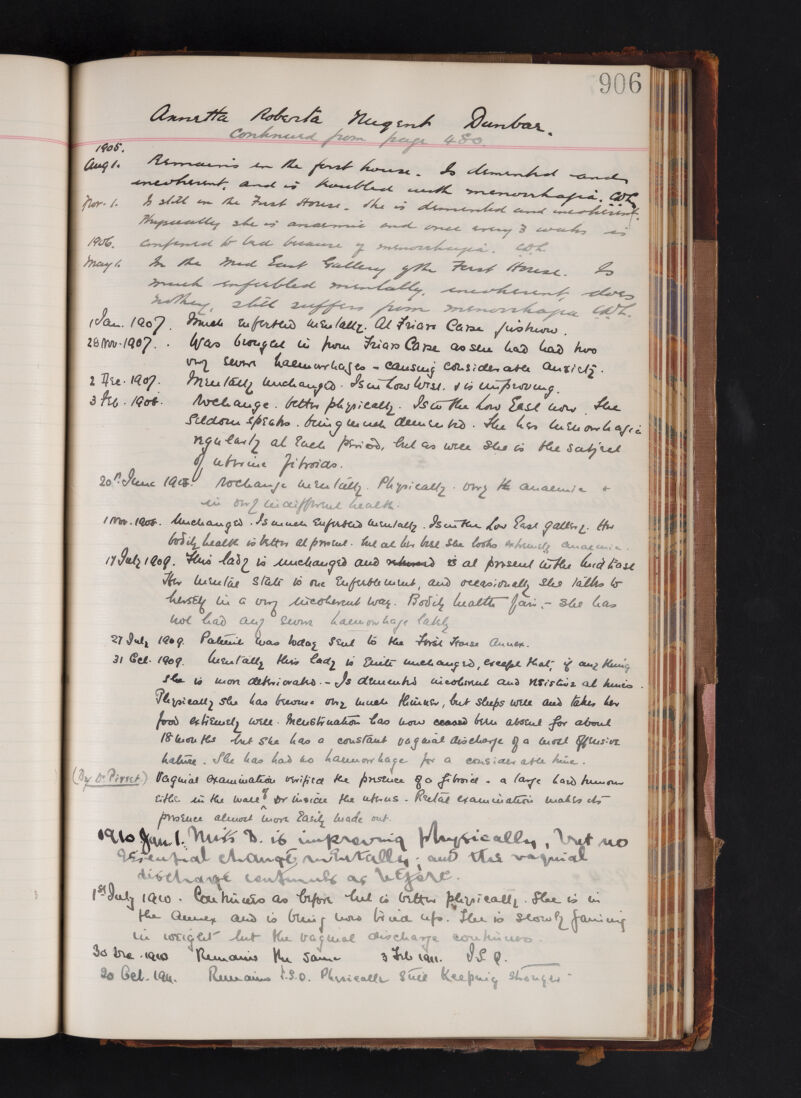 906
Annetta Roberta Nugent Dunbar.
Continued from page 480
1905.
Aug 1. Remains in the first house. Is demented and
incoherent, and is troubled with menorrhagia. CDL
Nov. 1. Is still in the First House. She is demented and incoherent.
Physically she is anaemic and once every 3 weeks is
1906. confined to bed because of menorrhagia. CDL
May 1. In the Mid East Gallery of the First House. Is
much enfeebled mentally, incoherent, does
nothing, still suffers from menorrhagia CDL.
1 Jan. 1907. Much enfeebled mentally. At Friars Carse just now.
28 Nov. 1907. Was brought in from Friars Carse as she had had two
very severe haemorrhages - causing considerable anxiety.
2 Dec. 1907. Mentally unchanged. Is in Low West & is improving.
3 Feb. 1908. No change. better physically. Is in the Low East now. She
Seldom speaks. being much demented. She has menorrhagia
regularly at Each period, but as well she is the subject
of uterine fibroids.
20th June 1908. No change mentally. Physically very anaemic &
in very indifferent health.
1 Nov. 1908. Unchanged. Is much Enfeebled mentally. Is in the Low East gallery. Her
bodily health is better at present. but at her best she looks extremely anaemic.
17 July 1909. This lady is unchanged and is at present in the Mid East
Her mental state is one Enfeeblement, and occasionally she talks to
herself in a very incoherent way. Bodily health fair, - She has
not had any severe haemorrhage lately
27 July 1909. Patient was today sent to the First House Annex.
31 Oct. 1909. Mentally this lady is Quite unchanged, except that, if any thing
she is more deteriorated. - Is demented incoherent and resistive at times.
Physically she has become very much thinner, but sleeps well and takes her
food extremely well. Menstruation has now ceased been absent for about
18 months but she has a constant vaginal discharge of a most offensive
nature. She has had no haemorrhage for a considerable time.
(By Dr Pirret) Vaginal examination verified the presence of a fibroid - a large hard tumour
either in the wall of or inside the uterus. Rectal examination makes its
presence almost more Easily made out.
1910 Jan 1. Miss D. is improving physically, but no
essential change mentally; and the vaginal
discharge continues as before.
1st July 1910. Continues as before but is better physically. She is in
the Annex and is being now tried up. She is slowly gaining
in weight but the vaginal discharge continues.
30 Dec. 1910 Remains the same 3 Feb 1911. I.S.Q.
20 Oct. 1911. Remains I.S.Q. Physically still keeping stronger